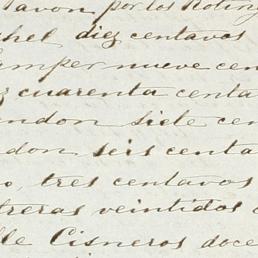 Pavon por los Rotin
chel diez centavos
Camper nueve cen
z cuarenta centa
andon siete cen
don seis centa
o, tres centavos
treras veintidos
lle Cisneros doce